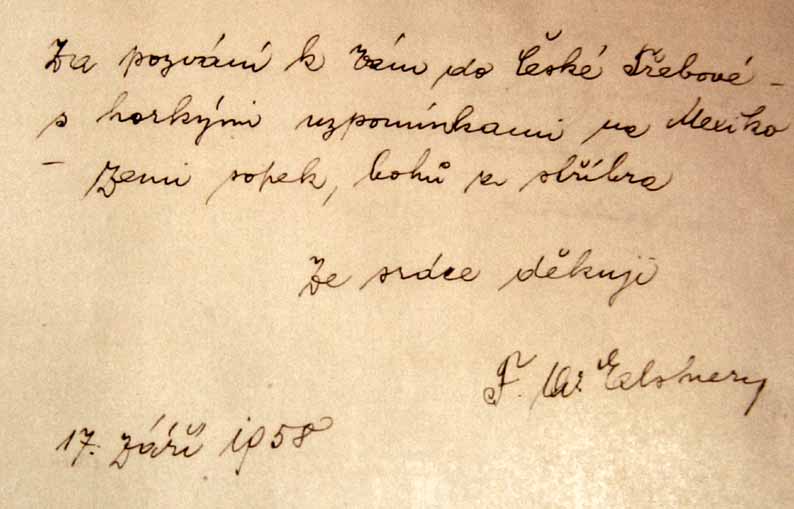 Za pozvání k Vám do České Třebové –
s horkými vzpomínkami na Mexiko
– Zemi sopek, bohů a stříbra
Ze srdce děkuji
F. Al. Elstner
17. září 1958